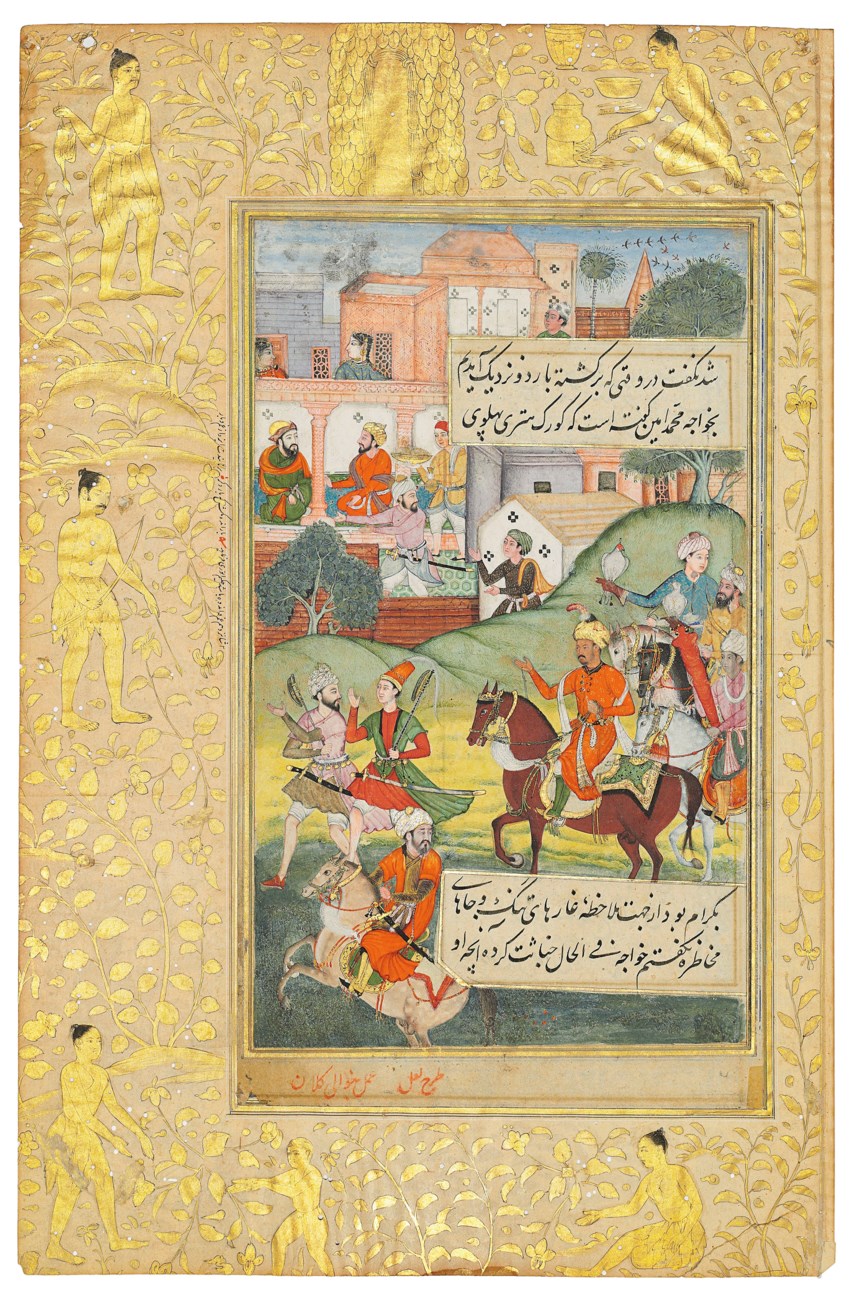 شد نگفت در وقتی که برگشته باردو نزدیک آمدیم
بخواجه محمد امین گفته است که کورک ستری پهلوی
بکرام بود از جهت ملاحظه غارهای تنک و جاهای
مخاطره نگفتم خواجه فی الحال خباثت کرده آنچه او
طرح لعل عمل بنوالی کلان